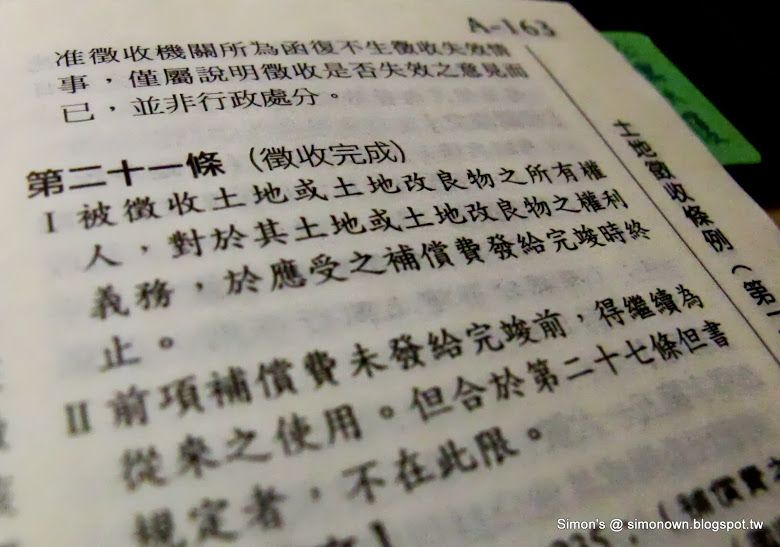 A-163
准徵收機關所為函復不生徵收失效情
事，僅屬說明徵收是否失效之意見而
已，並非行政處分。
第二十一條 (徵收完成)
I 被徵收土地或土地改良物之所有權
人，對於其土地或土地改良物之權利
義務，於應受之補償費發給完竣時終
止。
II 前項補償費未發給完竣前，得繼續為
從來之使用。但合於第二十七條但書
規定者，不在此限。
土地徵收條例（第一
（補償費
Simon's @ simonown.blogspot.tw